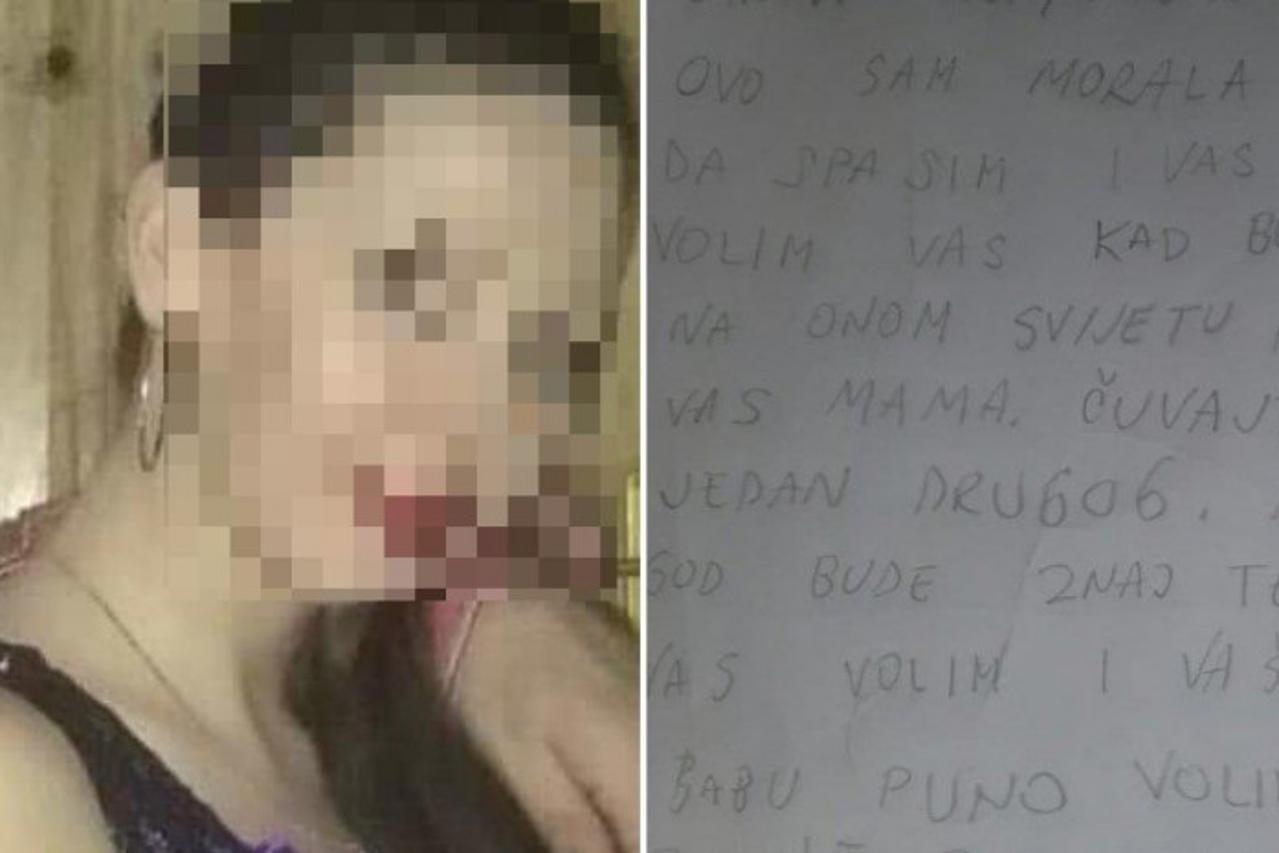 OVO SAM MORALA
DA SPASIM I VAS
VOLIM VAS KAD
NA ONOM SVIJETU
VAS MAMA. ČUVAJ
JEDAN DRUGOG.
GOD BUDE ZNAJ
VAS VOLIM I
BABU PUNO